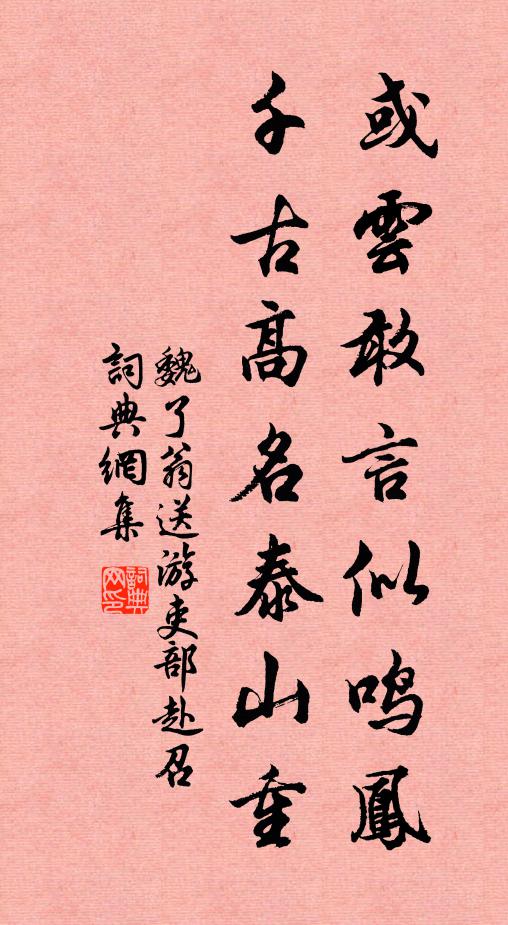 或雲敢言似鸣鳳
千古高名泰山重
魏了翁送游吏部赴召
詞典網集
詞典网印